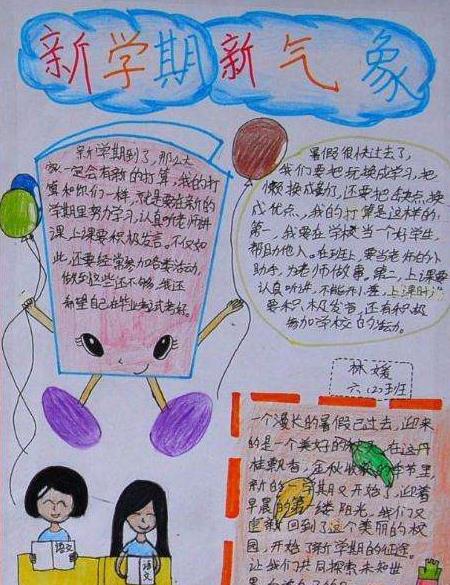 新学期新气象
新学期到了,那么大
家一定会有新的打算,我的打
算和你们一样,就是要在新的
学期里努力学习,认真听老师讲
课,上课要积极发言,不仅如
此,还要经常参加各类活动,
做到这些还不够,我还
希望自己在毕业考试考好。
暑假很快过去了,
我们要把玩换成学习,把
懒换成勤,还要把缺点换
成优点,我的打算是这样的:
第一,我要在学校当一个好学生,
帮助他人。在班上,要当老师的小
助手,为老师做事,第二,上课要
认真听讲,不能开小差,上课时
要积极发言,还有积极
参加学校的活动。
林媛
六(2)班
一个漫长的暑假已过去,迎来
的是一个美好的秋天,在这丹
桂飘香,金秋收获的季节里
新的一学期又开始了,迎着
早晨的第一缕阳光,我们又
重新回到了这个美丽的校
园,开始了新学期的征途。
让我们共同探索未知世
语文
语文